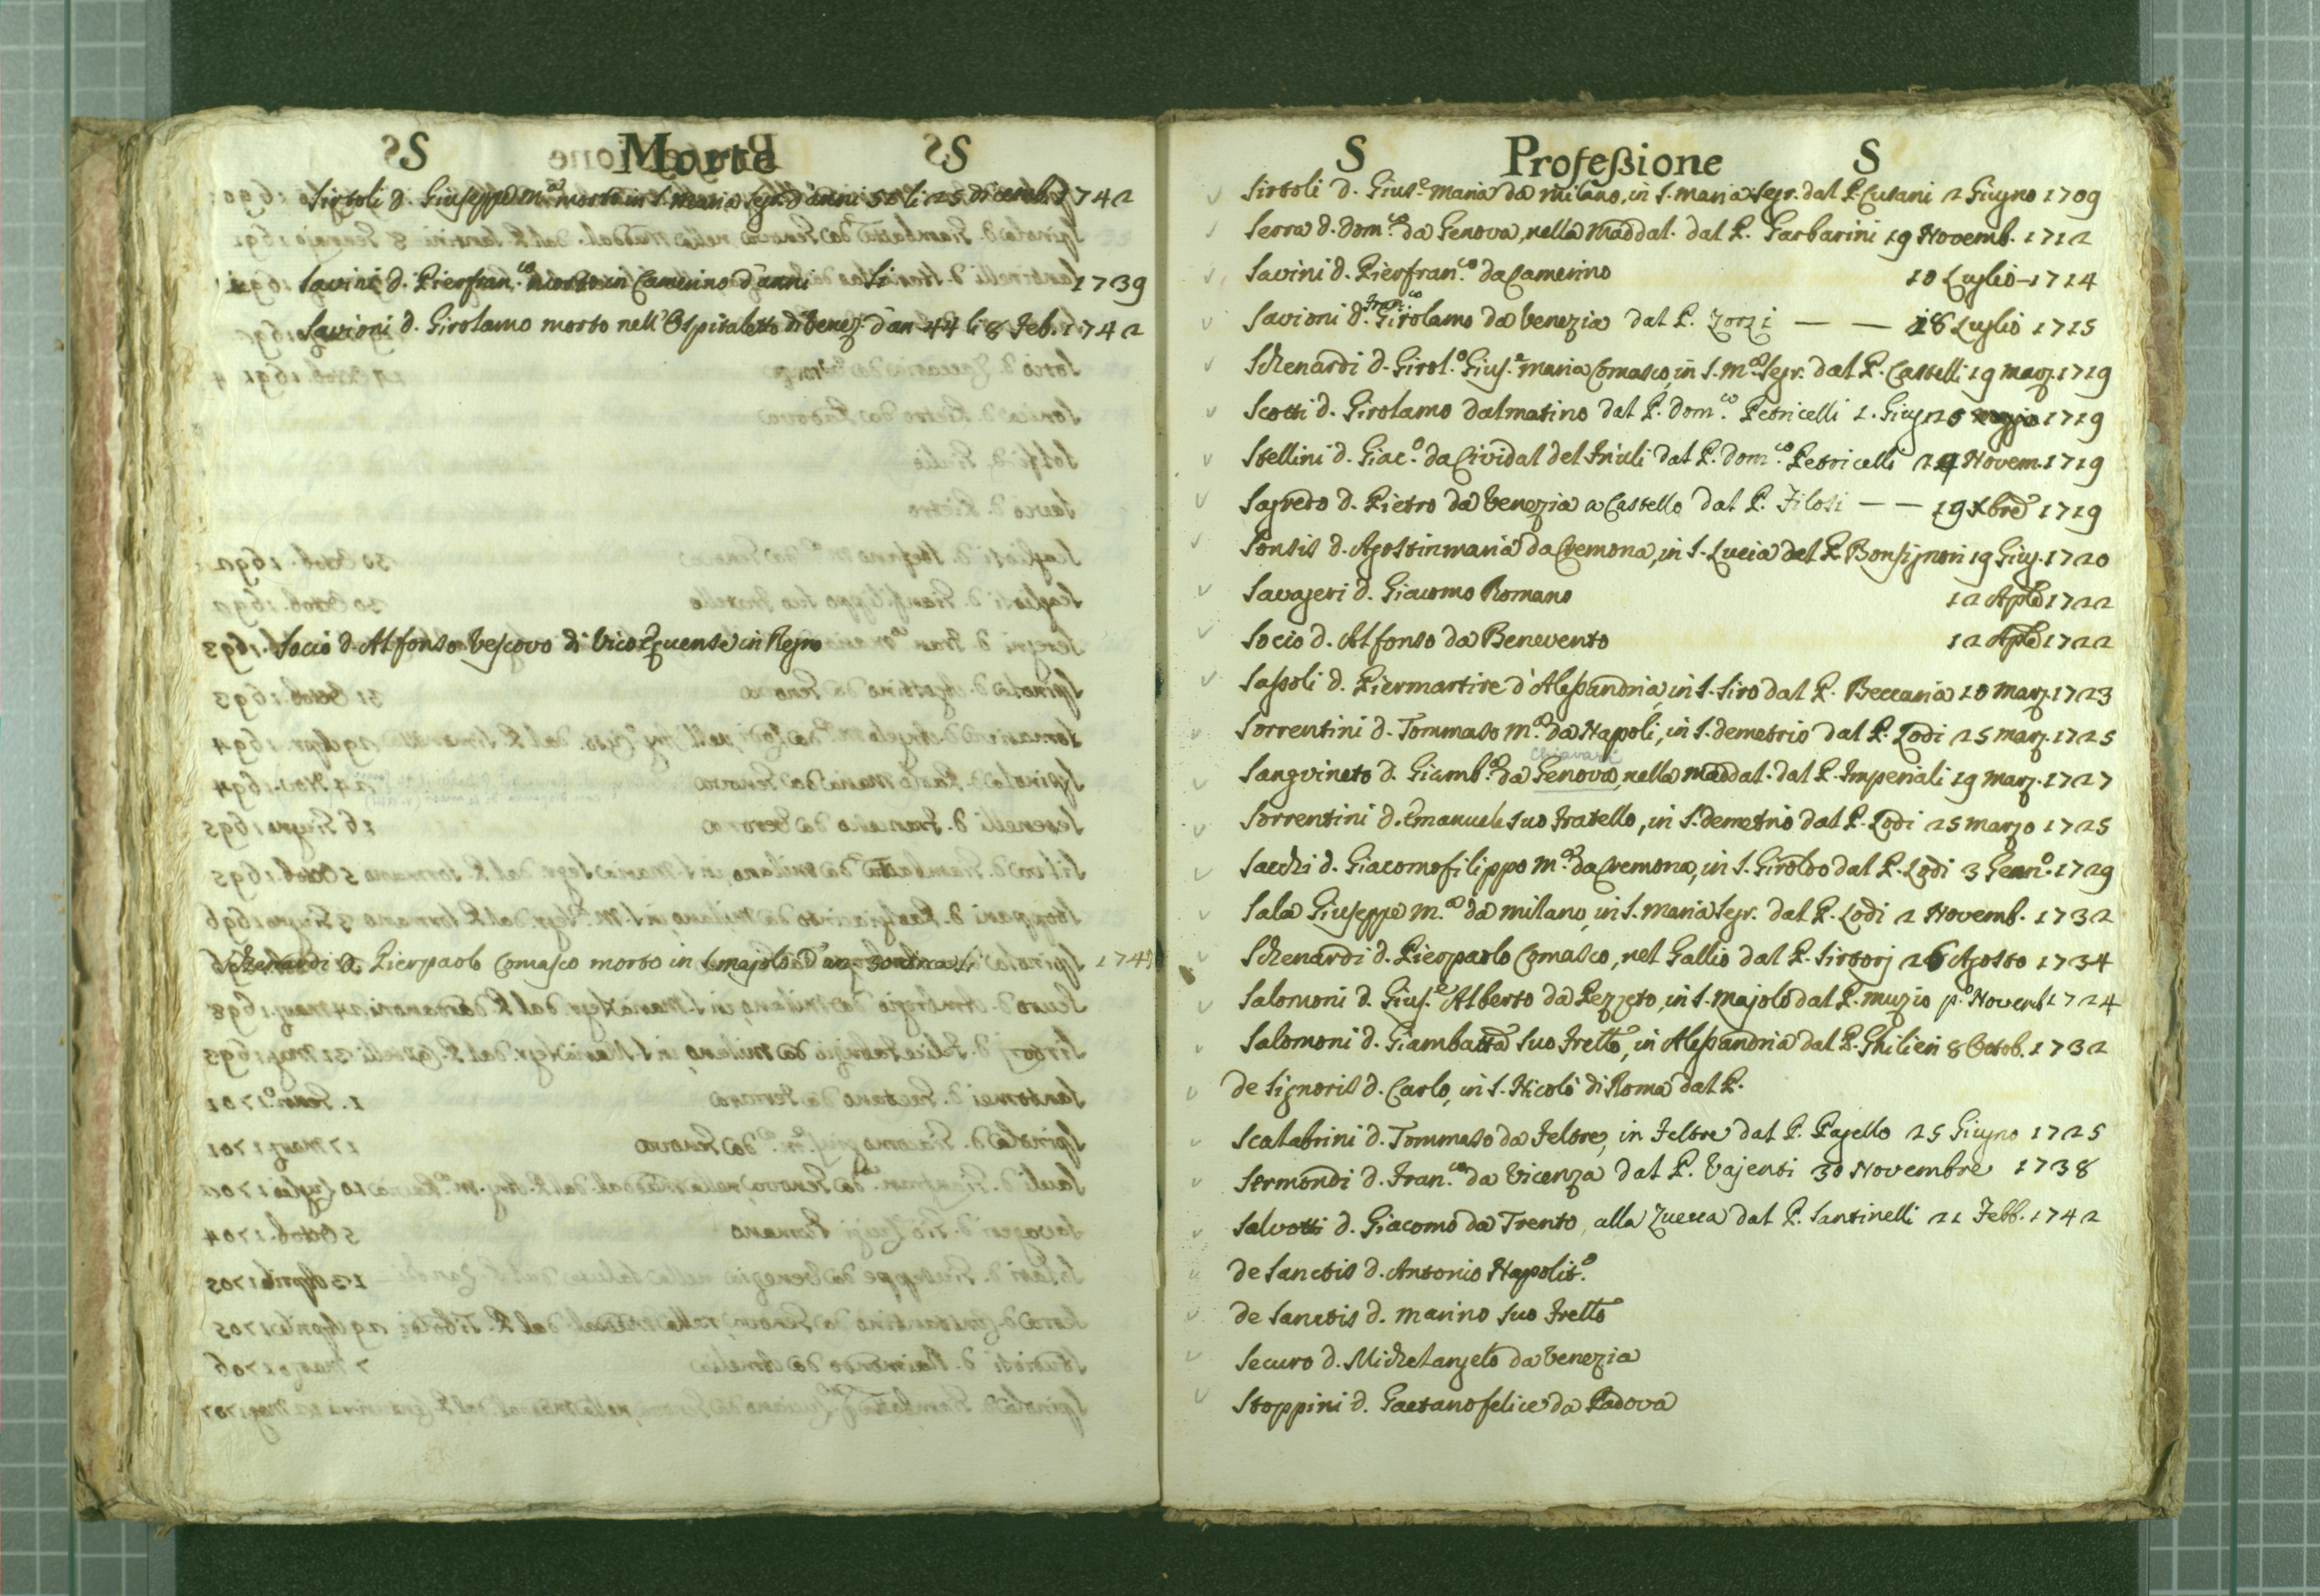 S Morte S
Sirtoli d. Giuseppe m.ª morto in S. Maria Segr. d'anni 50 li 25 dicemb. 1742
Savini d. Pierfran.co morto in Camerino d'anni li 1739
Savioni d. Girolamo morto nell'Ospitaletto di Venez. d'an 44 li 8 Feb. 1742
Socio d. Alfonso Vescovo di Vico Equense in Regno
Schenardi d. Pierpaolo Comasco morto in S. Majolo d'an. 174
S Profeßione S
Sirtoli d. Gius.e Maria da Milano, in S. Maria Segr. dal P. Cusani 2 Giugno 1709
Serra d. Dom.co da Genova, nella Maddal. dal P. Garbarini 19 Novemb. 1712
Savini d. Pierfran.co da Camerino 10 Luglio 1714
Savioni d. Fran.co Girolamo da Venezia dal P. Zorzi — — 28 Luglio 1715
Schenardi d. Girol.º Gius.e Maria Comasco, in S. M.ª Segr. dal P. Castelli 19 Marz. 1719
Scotti d. Girolamo Dalmatino dal P. Dom.co Petricelli 1. Giug 1719
Stellini d. Giac.º da Cividal del Friuli dal P. Dom.co Petricelli 24 Novem. 1719
Sagredo d. Pietro da Venezia a Castello dal P. Filosi — — 19 Xbre 1719
Sonsis d. Agostinmaria da Cremona, in S. Lucia dal P. Bonsignori 19 Giug. 1720
Savageri d. Giacomo Romano 12 Aple 1722
Socio d. Alfonso da Benevento 12 Aple 1722
Sassoli d. Piermartire d'Alessandria, in S. Siro dal P. Beccaria 10 Marz. 1723
Sorrentini d. Tommaso M.ª da Napoli, in S. Demetrio dal P. Lodi 25 Marz. 1725
Chiavari
Sangvineto d. Giamb.ª da Genova, nella Maddal. dal P. Imperiali 19 Marz. 1727
Sorrentini d. Emanuele suo Fratello, in S. Demetrio dal P. Lodi 25 Marzo 1725
Sacchi d. Giacomofilippo M.ª da Cremona, in S. Giroldo dal P. Lodi 3 Genn.º 1729
Sala Giuseppe M.ª da Milano, in S. Maria Segr. dal P. Lodi 2 Novemb. 1732
Schenardi d. Pierpaolo Comasco, nel Gallio dal P. Sirtorj 26 Agosto 1734
Salomoni d. Gius.e Alberto da Pezzeto, in S. Majolo dal P. Muzio p.º Novemb 1724
Salomoni d. Giambatta suo Frello, in Alessandria dal P. Ghilieri 8 Ottob. 1732
de Signoris d. Carlo, in S. Nicolò di Roma dal P.
Scalabrini d. Tommaso da Feltre, in Feltre dal P. Pagello 25 Giugno 1725
Sermondi d. Fran.co da Vicenza dal P. Vajenti 30 Novembre 1738
Salvotti d. Giacomo da Trento, alla Zuecca dal P. Santinelli 21 Febb. 1742
de Sanctis d. Antonio Napolit.º
de Sanctis d. Marino suo Frello
Securo d. Michelangelo da Venezia
Stoppini d. Gaetanofelice da Padova